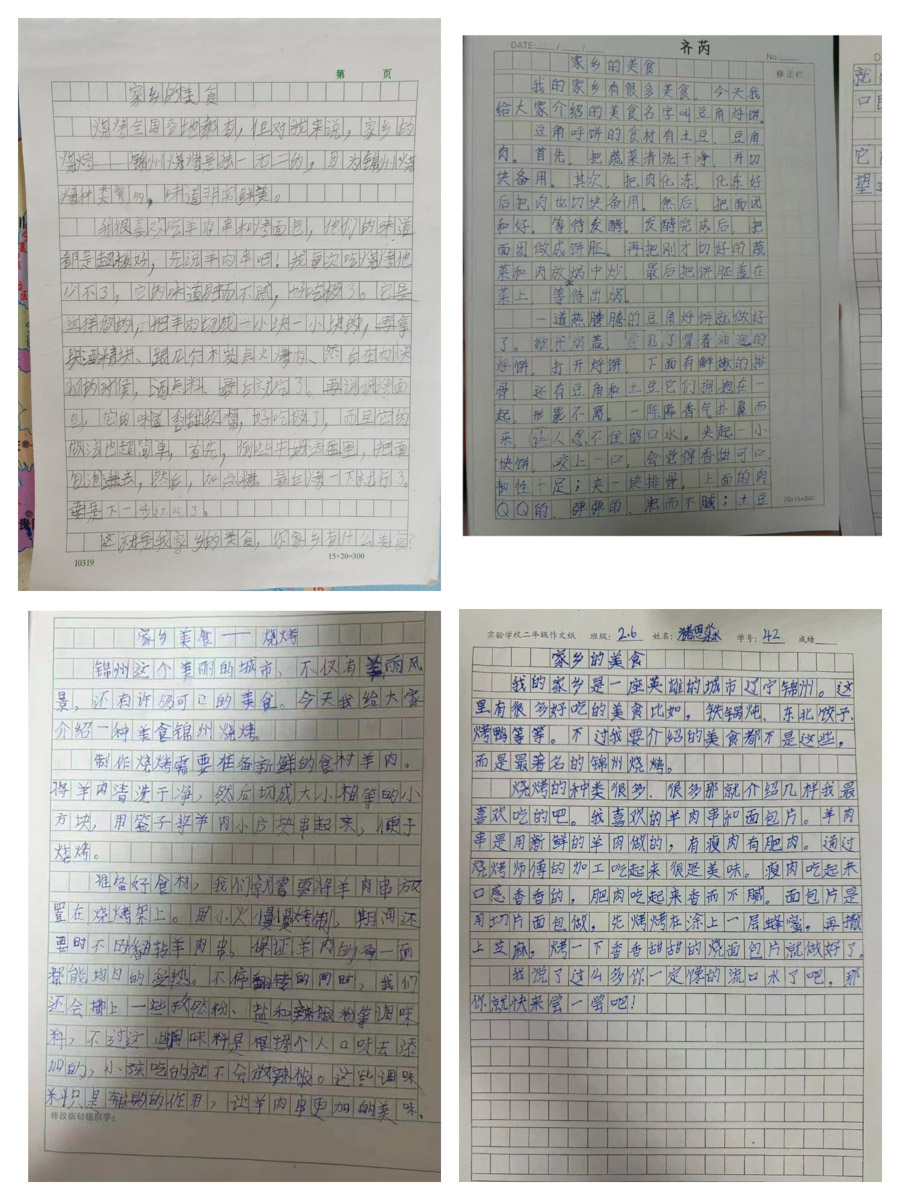 第 页
家乡的美食
烧烤全国各地都有,但对我来说,家乡的
烧烤——锦州烧烤是独一无二的,因为锦州烧
烤种类繁多,味道非常鲜美。
我很喜欢吃羊肉串和烤面包,他们的味道
都是超级好,先说羊肉串吧!我每次吃烧烤他
少不了,它的味道肥而不腻,好吃极了。它是
这样做的,把羊肉切成一小块一小块的,再拿
包,它的味道香甜软糯,好吃极了,而且它的
做法也超简单,首先,倒些牛奶到盘里,把面
包泡进去,然后,加点糖,最后烤一下就行了。
要是下一步
这就是我家乡的美食,你家乡有什么美食?
10319
15×20=300
DATE: / /
齐芮
No.
修正栏
家乡的美食
我的家乡有很多美食。今天我
给大家介绍的美食名字叫豆角焖饼。
豆角焖饼的食材有土豆、豆角
肉。首先,把蔬菜清洗干净,并切
块备用。其次,把肉化冻,化冻好
后把肉也切块备用。然后,把面团
和好。等待发酵。发酵完成后,把
面团做成饼胚。再把刚才切好的蔬
菜和肉放锅中炒,最后把饼胚盖在
菜上,等待出锅。
一道热腾腾的豆角焖饼就做好
了。掀开锅盖,看见了冒着油泡的
焖饼,打开焖饼,下面有鲜嫩的排
骨,还有豆角和土豆它们拥抱在一
起,形影不离。一阵阵香气扑鼻而
来,让人忍不住留口水。夹起一小
块饼,咬上一口,会觉得香甜可口
韧性十足;夹一块排骨,上面的肉
QQ的、弹弹的、肥而不腻;土豆
20×15=300
D
就
口
它
望
家乡美食——烧烤
锦州这个美丽的城市,不仅有美丽风
景,还有许多可口的美食。今天我给大家
介绍一种美食锦州烧烤。
制作烧烤需要准备新鲜的食材羊肉。
将羊肉清洗干净,然后切成大小相等的小
方块,用签子将羊肉小方块串起来,便于
烧烤。
准备好食材,我们需要将羊肉串放
置在烧烤架上。用小火慢慢烤制,期间还
要时不时翻转羊肉串,保证羊肉的每一面
都能均匀的受热。不停翻转的同时,我们
还会撒上一些孜然粉、盐和辣椒粉等调味
料,不过这些调味料是根据个人口味去添
加的,小孩吃的就不会放辣椒。这些调味
料只是辅助的作用,让羊肉串更加的美味。
实验学校二年级作文纸 班级:2.6 姓名: 学号:42 成绩
家乡的美食
我的家乡是一座英雄的城市辽宁锦州。这
里有很多好吃的美食比如,铁锅炖、东北饺子、
烤鸭等等。不过我要介绍的美食都不是这些,
而是最著名的锦州烧烤。
烧烤的种类很多,很多那就介绍几样我最
喜欢吃的吧。我喜欢的羊肉串和面包片。羊肉
串是用新鲜的羊肉做的,有瘦肉有肥肉。通过
烧烤师傅的加工吃起来很是美味。瘦肉吃起来
口感香香的,肥肉吃起来香而不腻。面包片是
用切片面包做,先烤烤在涂上一层蜂蜜,再撒
上芝麻,烤一下香香甜甜的烧面包片就做好了。
我说了这么多你一定馋的流口水了吧,那
你就快来尝一尝吧!